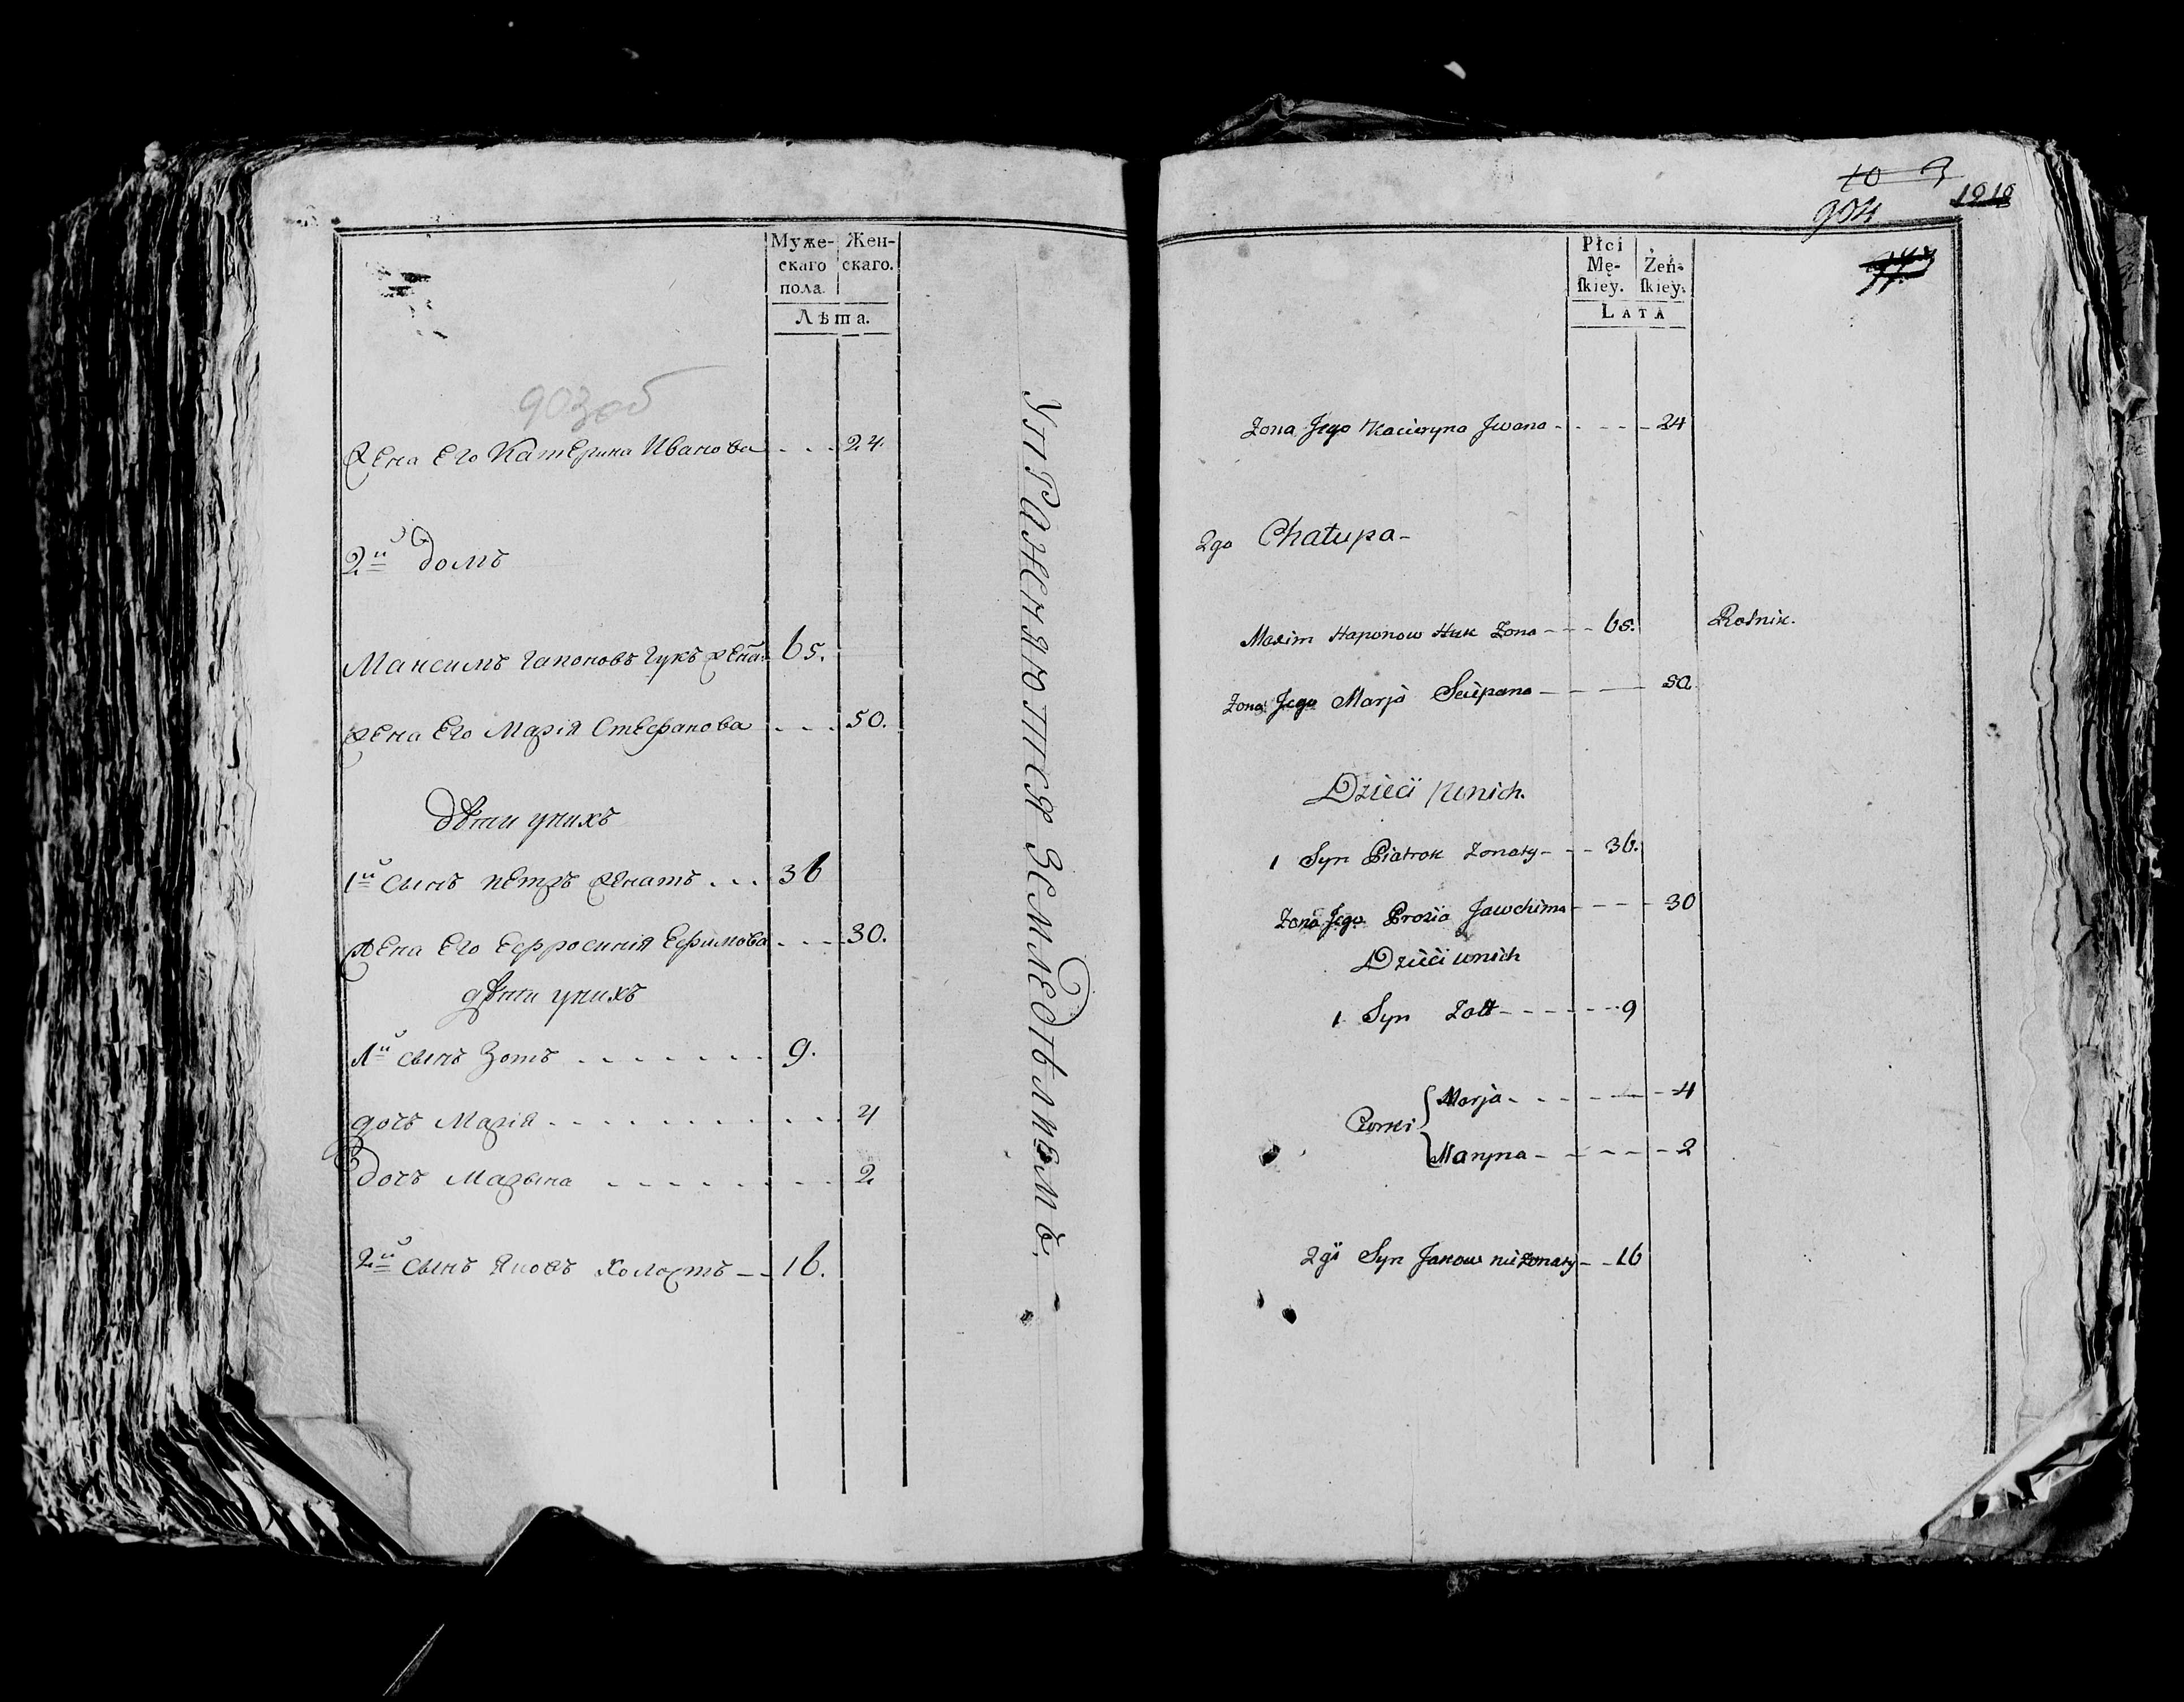 Муже-
скаго
пола.
Жен-
скаго.
Лѣта.
903 об
Жена Его Катерина Иванова . . . 24.
2й домъ
Максимъ Гапоновъ Гукъ жена. 65.
Жена Его Марія Стефанова . . . 50.
дѣти у нихъ
1й сынъ петръ женатъ . . . 36
Жена Его Ефросинія Ефимова . . . 30.
дѣти у нихъ
1й сынъ Зотъ . . . . . . . 9.
дочь Марія . . . . . . . . . . 4
дочь Марына . . . . . . . . 2
2й сынъ Яковъ холостъ — 16.
Упражняются Земледѣлиемъ.
904
1212
Płci
Mę-
ſkiey.
Żeń-
ſkiey.
LATA
Zona Jego Kacieryna Jwana - - - - 24
2go Chałupa -
Maxim Haponow Huk Zona - - - 65. Rolnik.
Zona Jego Marja Sciepana - - - 50
Dzieci unich.
1 Syn Piatrok Zonaty - - - 36.
Zona Jego Prosia Jawchima - - - - 30
Dzieci unich
1 Syn Zott - - - - - - - 9
Corki { Marja - - - - - - 4
Maryna - - - - - - 2
2gi Syn Jakow nieZonaty - - 16